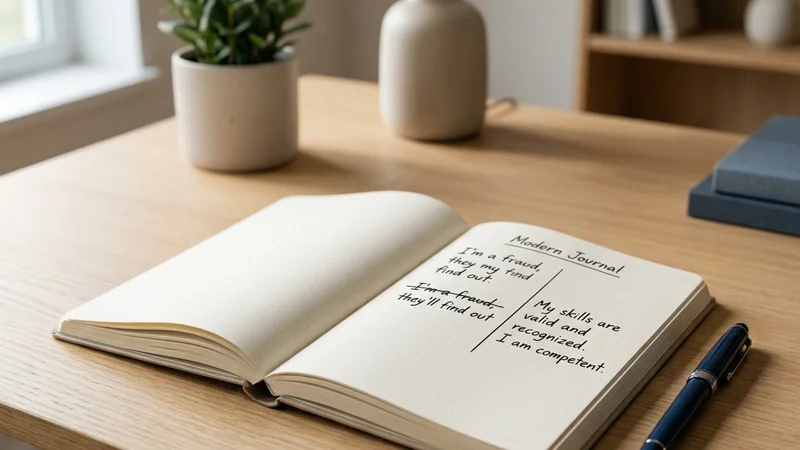 Modern Journal
I'm a fraud,
they my find
find out.
I'm a fraud,
they'll find out
My skills are
valid and
recognized.
I am competent.